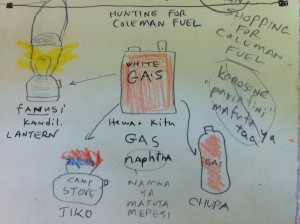 HUNTING FOR
COLEMAN FUEL
SHOPPING
FOR
COLEMAN
FUEL
WHITE
GAS
fanusi
kandil
LANTERN
Hewa Kitu
GAS
naphtha
NAMNA
YA
MAFUTA
MEPESI
CAMP
STOVE
JIKO
GAS
CHUPA
KAROSINE
mafuta ya
taa